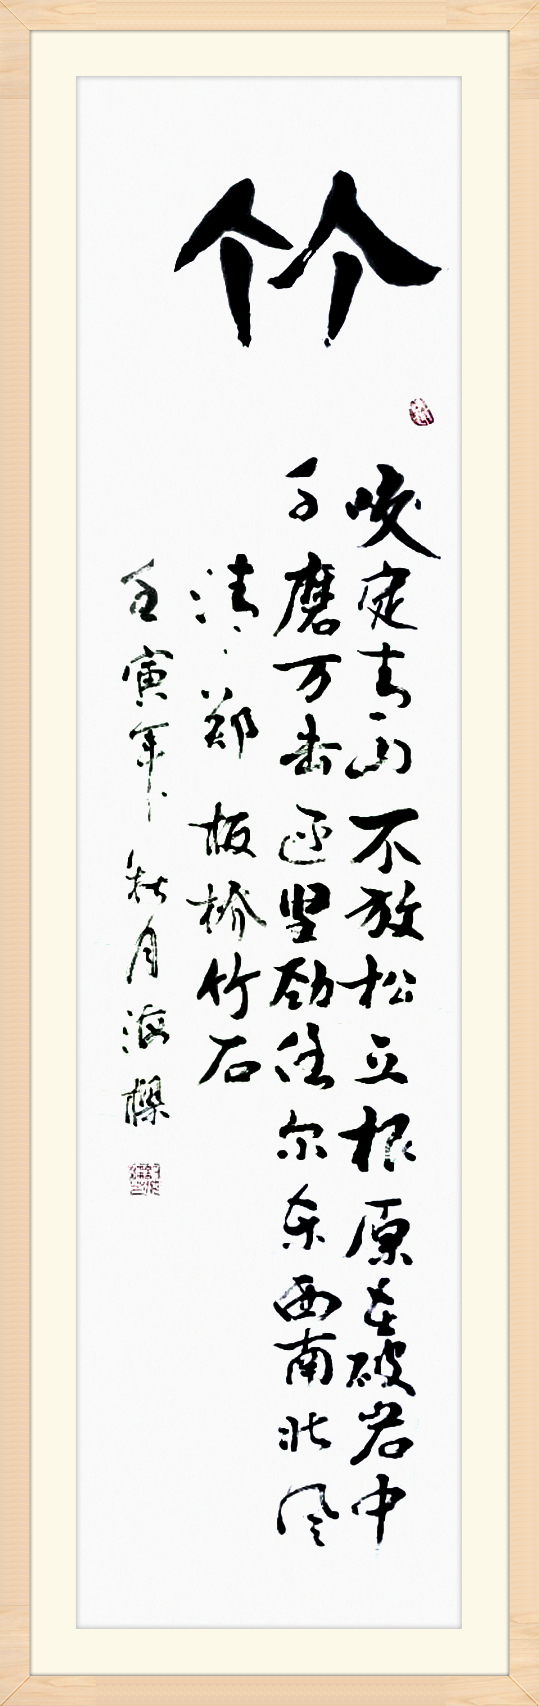 竹
咬定青山不放松立根原在破岩中
千磨万击还坚劲任尔东西南北风
清郑板桥竹石
壬寅年秋月海